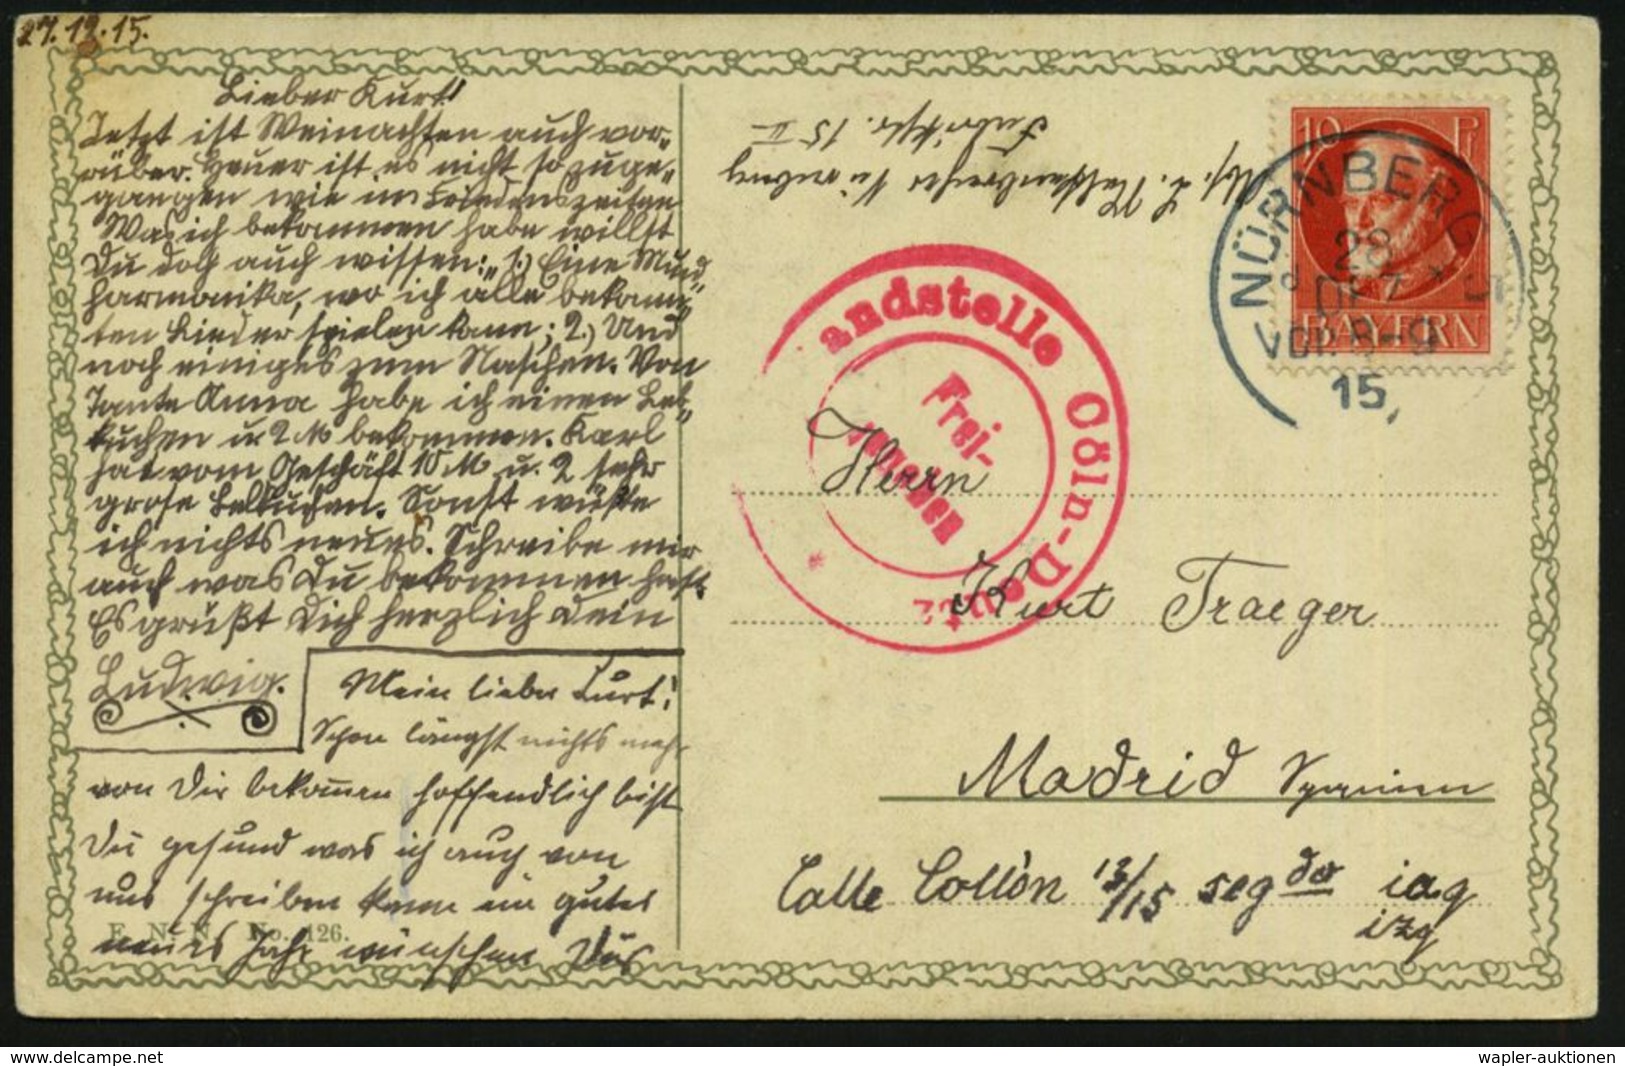 27.12.15.
Lieber Kurt!
Jetzt ist Weinachten auch vor-
rüber. Heuer ist es nicht so zuge-
gangen wie im Friedenszeiten
Was ich bekommen habe willst
Du doch auch wissen: 1.) Eine Mund-
harmonika, wo ich alle bekann-
ten Lieder spielen kann; 2.) Und
noch einiges zum Naschen. Von
Tante Anna habe ich einen Leb-
kuchen u. 2 M bekommen. Karl
hat vom Geschäft 10 M u. 2 sehr
grose Lebkuchen. Sonst wüßte
ich nichts neues. Schreibe mir
auch was Du bekommen hast.
Es grüßt Dich herzlich Dein
Ludwig.
Mein lieber Kurt!
Schon längst nichts mehr
von Dir bekommen hoffendlich bist
Du gesund was ich auch von
uns schreiben kann ein gutes
neues Jahr wünschen Dir
E. N. N. No. 126.
Abs. L. Nürnberg
15 II
10 Pf
BAYERN
NÜRNBERG
28
DEZ
VOR. 8-9
15
andstelle Cöln-Deutz
Frei-
Herrn
Kurt Traeger
Madrid Spanien
Calle Collón 13/15 seg do izq
izq
https://picclick.de
wapler-auktionen